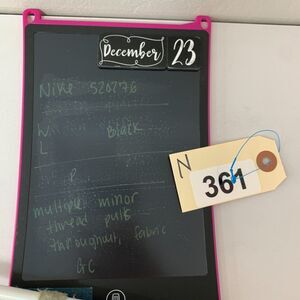 December 23
Nike 520276
W Black
L
P
N
361
multiple minor
thread pulls
throughout, fabric
GC